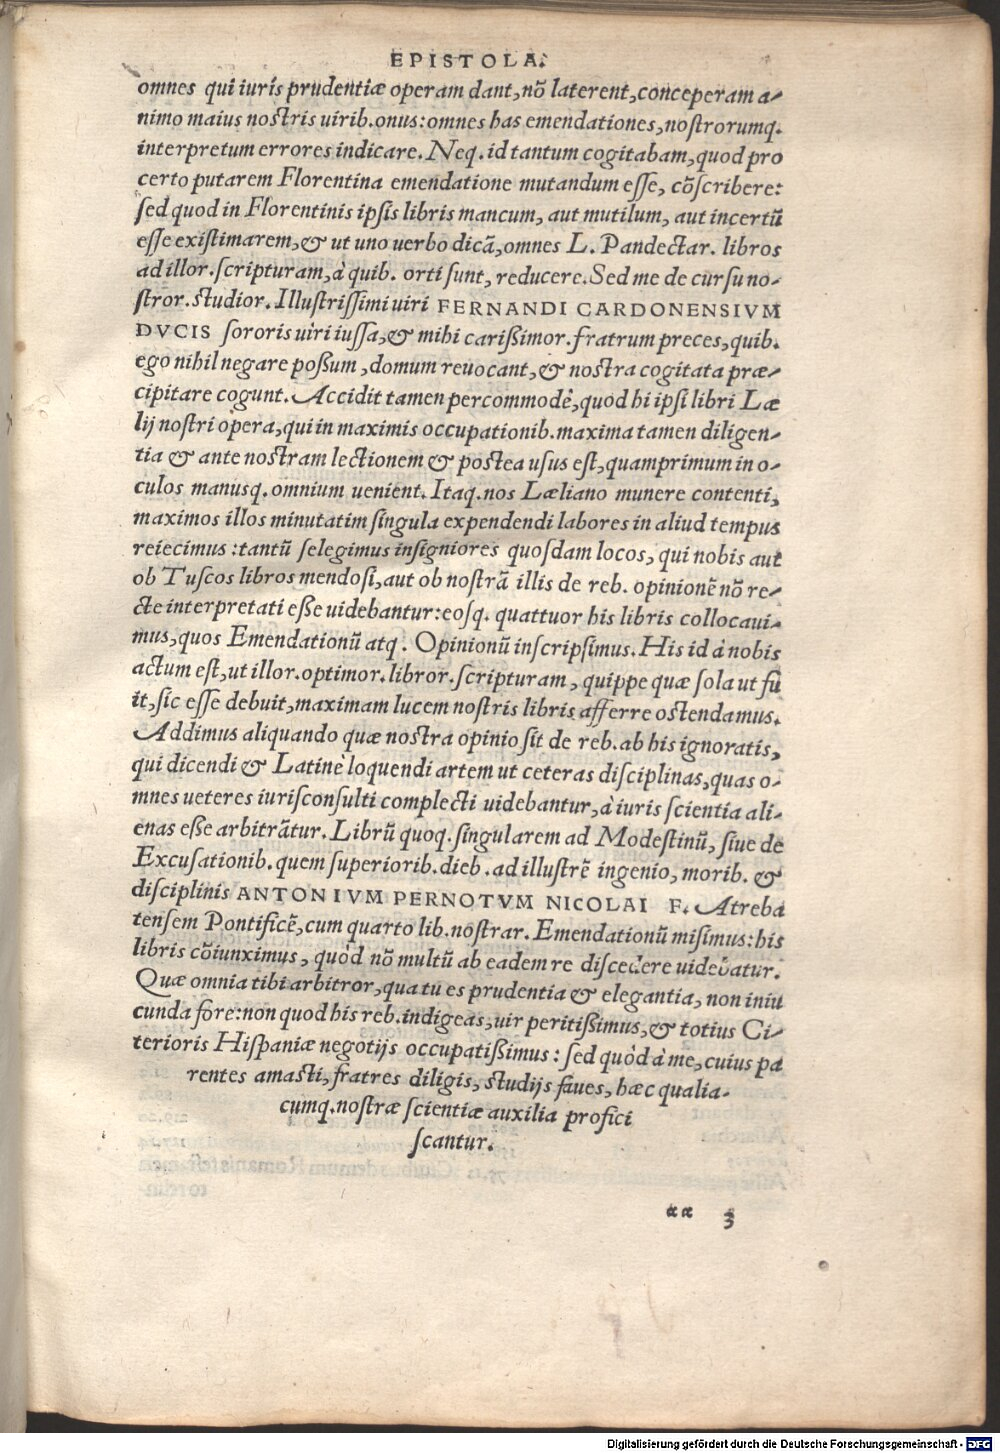 EPISTOLA.
omnes qui iuris prudentiæ operam dant, nō laterent, conceperam a-
nimo maius nostris uirib. onus: omnes has emendationes, nostrorumq.
interpretum errores indicare. Neq. id tantum cogitabam, quod pro
certo putarem Florentina emendatione mutandum esse, cōscribere:
sed quod in Florentinis ipsis libris mancum, aut mutilum, aut incertū
esse existimarem, & ut uno uerbo dicā, omnes L. Pandectar. libros
ad illor. scripturam, à quib. orti sunt, reducere. Sed me de cursu no-
stror. studior. Illustrissimi uiri FERNANDI CARDONENSIVM
DVCIS sororis uiri iussa, & mihi carißimor. fratrum preces, quib.
ego nihil negare poßum, domum reuocant, & nostra cogitata præ-
cipitare cogunt. Accidit tamen percommodè, quod hi ipsi libri Læ
lij nostri opera, qui in maximis occupationib. maxima tamen diligen-
tia & ante nostram lectionem & postea usus est, quamprimum in o-
culos manusq. omnium uenient. Itaq. nos Læliano munere contenti,
maximos illos minutatim singula expendendi labores in aliud tempus
reiecimus: tantū selegimus insigniores quosdam locos, qui nobis aut
ob Tuscos libros mendosi, aut ob nostrā illis de reb. opinionē nō re-
cte interpretati eße uidebantur: eosq. quattuor his libris collocaui-
mus, quos Emendationū atq. Opinionū inscripsimus. His id à nobis
actum est, ut illor. optimor. libror. scripturam, quippe quæ sola ut fu
it, sic esse debuit, maximam lucem nostris libris afferre ostendamus.
Addimus aliquando quæ nostra opinio sit de reb. ab his ignoratis,
qui dicendi & Latinè loquendi artem ut ceteras disciplinas, quas o-
mnes ueteres iurisconsulti complecti uidebantur, à iuris scientia ali-
enas eße arbitrātur. Librū quoq. singularem ad Modestinū, siue de
Excusationib. quem superiorib. dieb. ad illustrē ingenio, morib. &
disciplinis ANTONIVM PERNOTVM NICOLAI F. Atreba
tensem Pontificē, cum quarto lib. nostrar. Emendationū misimus: his
libris cōiunximus, quòd nō multū ab eadem re discedere uidebatur.
Quæ omnia tibi arbitror, qua tu es prudentia & elegantia, non iniu
cunda fore: non quod his reb. indigeas, uir peritißimus, & totius Ci-
terioris Hispaniæ negotijs occupatißimus: sed quòd à me, cuius pa
rentes amasti, fratres diligis, studijs faues, hæc qualia-
cumq. nostræ scientiæ auxilia profici
scantur.
aa 3
Digitalisierung gefördert durch die Deutsche Forschungsgemeinschaft - DFG